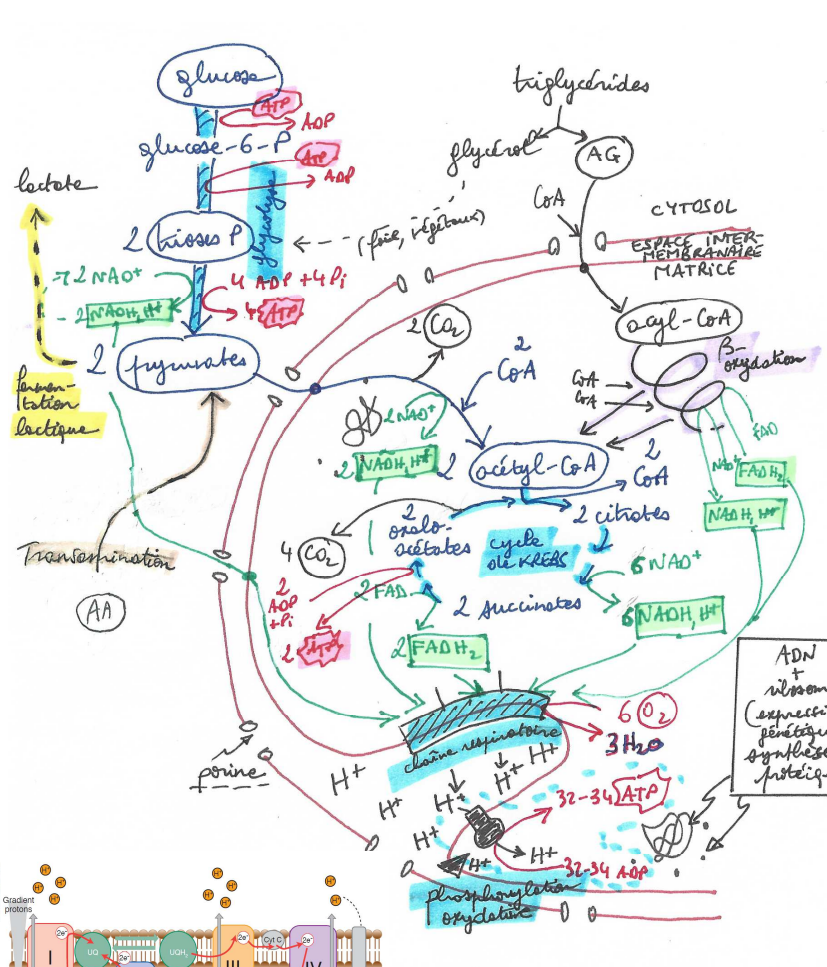 glucose
ATP
ADP
glucose-6-P
ATP
ADP
glycolyse
2 trioses P
(foie, végétaux)
lactate
2 NAD+
2 NADH, H+
4 ADP + 4 Pi
4 ATP
2 pyruvates
fermen-
tation
lactique
Transamination
AA
triglycérides
glycérol
AG
CoA
CYTOSOL
ESPACE INTER-
MEMBRANAIRE
MATRICE
acyl-CoA
β-
oxydation
CoA
CoA
FAD
NAD+
FADH2
NADH, H+
2 CO2
2
CoA
2 NAD+
2 NADH, H+
2 acétyl-CoA
2
CoA
2
oxalo-
acétates
2 citrates
cycle
de KREBS
4 CO2
6 NAD+
6 NADH, H+
2 succinates
2
ADP
+Pi
2 ATP
2 FAD
2 FADH2
chaîne respiratoire
6 O2
3 H2O
porine
H+
H+
H+
H+
H+
H+
H+
H+
32-34 ATP
32-34 ADP
phosphorylation
oxydative
ADN
+
ribosom
(expressi
génétiqu
synthès
protéiq
Gradient
protons
H+
H+
H+
H+
H+
H+
H+
I
2e-
UQ
2e-
UQH2
III
2e-
Cyt C
2e-
IV